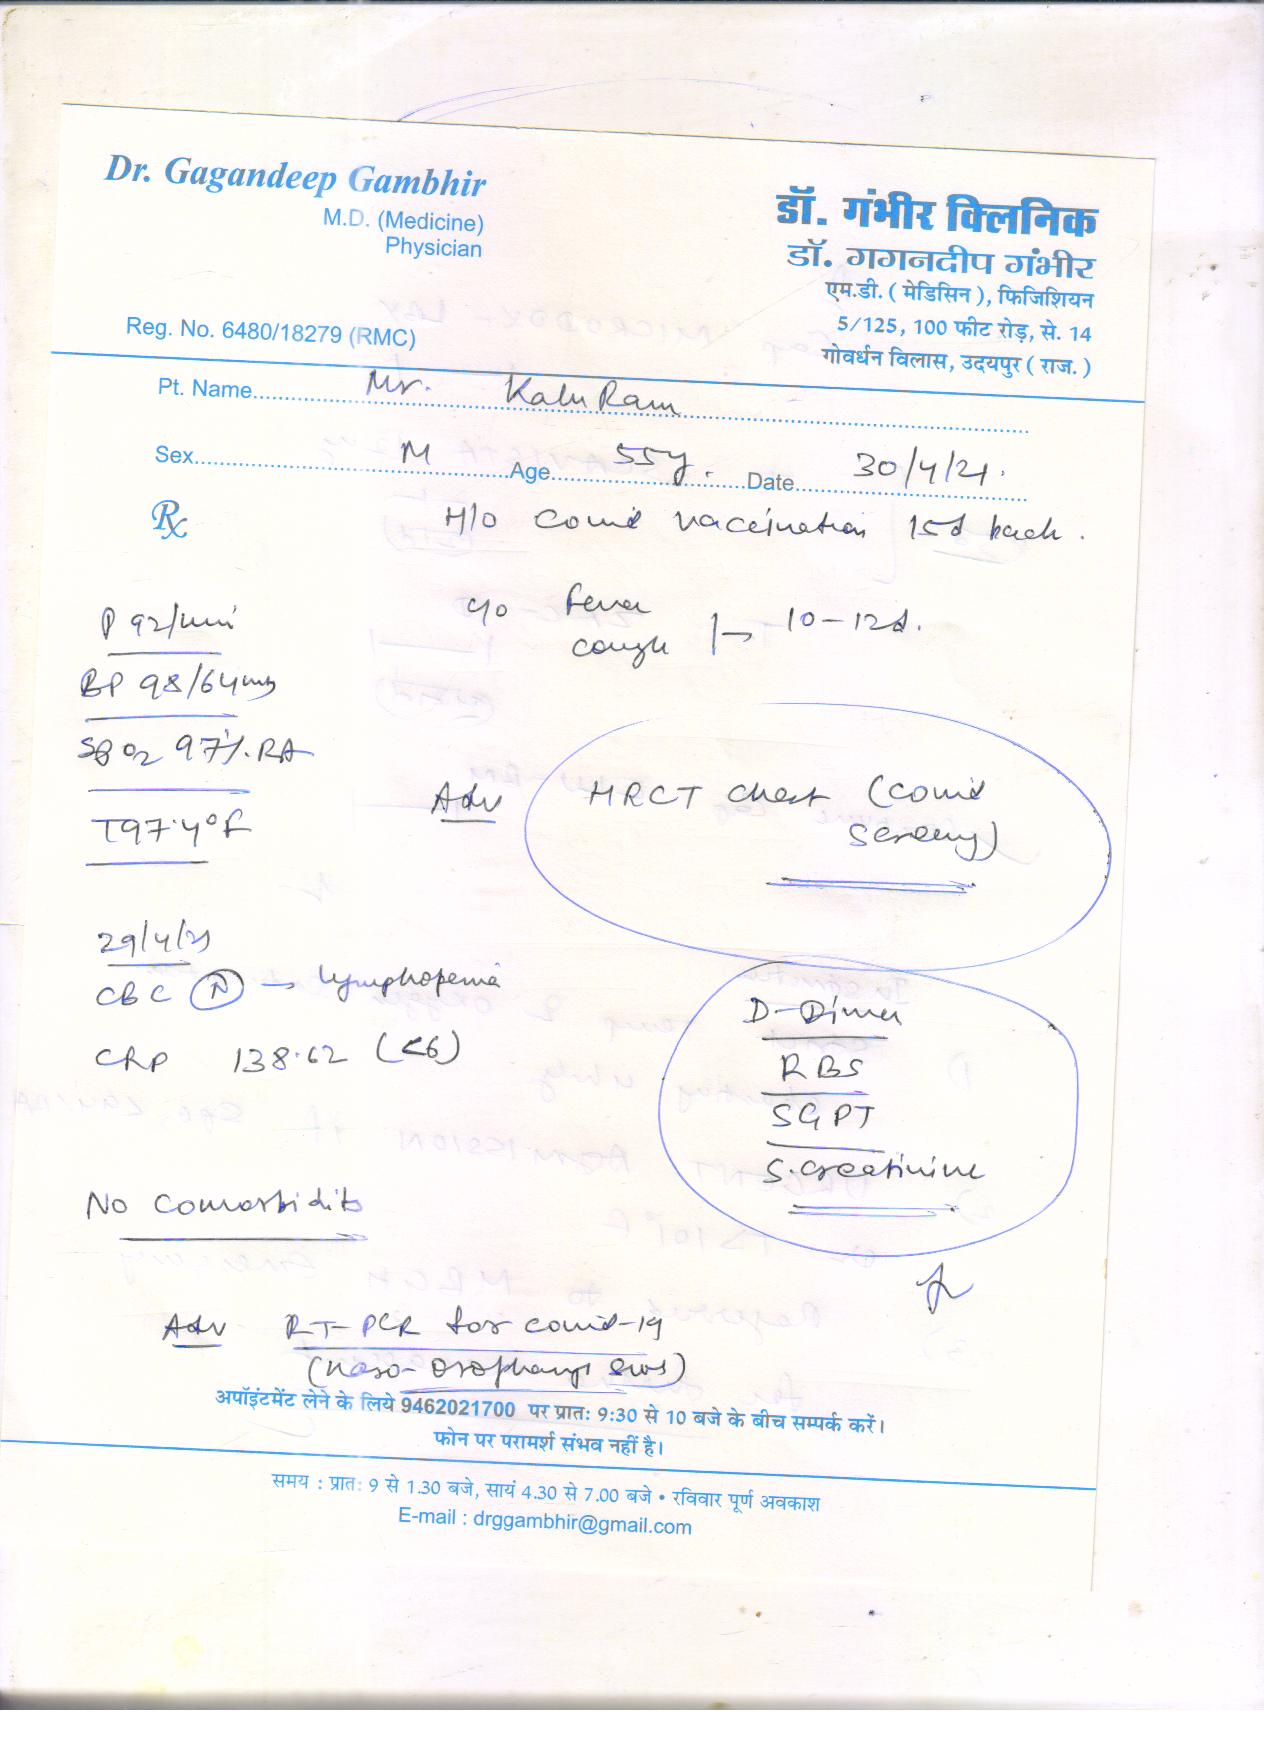 Dr. Gagandeep Gambhir
M.D. (Medicine)
Physician
Reg. No. 6480/18279 (RMC)
डॉ. गंभीर क्लिनिक
डॉ. गगनदीप गंभीर
एम.डी. ( मेडिसिन ), फिजिशियन
5/125, 100 फीट रोड़, से. 14
गोवर्धन विलास, उदयपुर ( राज. )
Pt. Name Mr. Kalu Ram
Sex M Age 55y. Date 30/4/21.
Rx
H/O Covid vaccination 15d back.
P 92/min
BP 98/64
SpO2 97% RA
T 97.4°F
c/o Fever
cough → 10-12d.
Adv HRCT Chest (Covid
29/4/21
CBC (N) → lymphopenia
CRP 138.62 (<6)
D-Dimer
RBS
SGPT
S. Creatinine
No comorbidits
Adv RT-PCR for covid-19
(Naso-
अपॉइंटमेंट लेने के लिये 9462021700 पर प्रातः 9:30 से 10 बजे के बीच सम्पर्क करें।
फोन पर परामर्श संभव नहीं है।
समय : प्रातः 9 से 1.30 बजे, सायं 4.30 से 7.00 बजे • रविवार पूर्ण अवकाश
E-mail : drggambhir@gmail.com